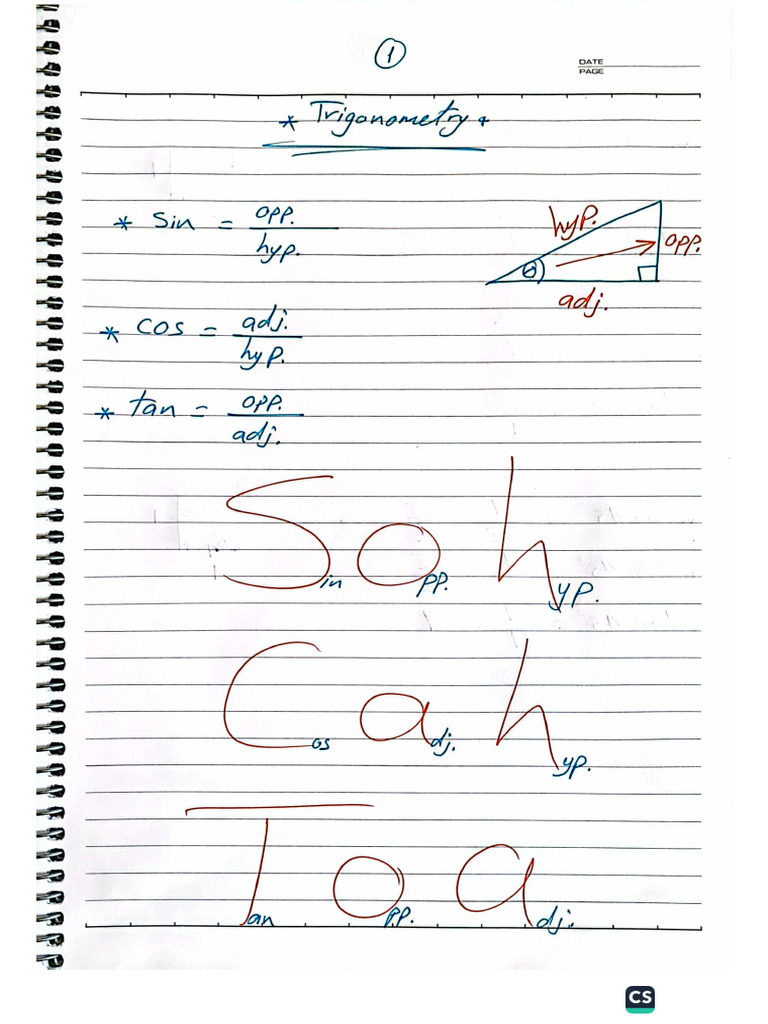 1
DATE
PAGE
* Trigonometry *
* Sin = opp. / hyp.
hyp.
opp.
θ
adj.
* cos = adj. / hyp.
* tan = opp. / adj.
Sin opp. hyp.
Cos adj. hyp.
Tan opp. adj.
CS